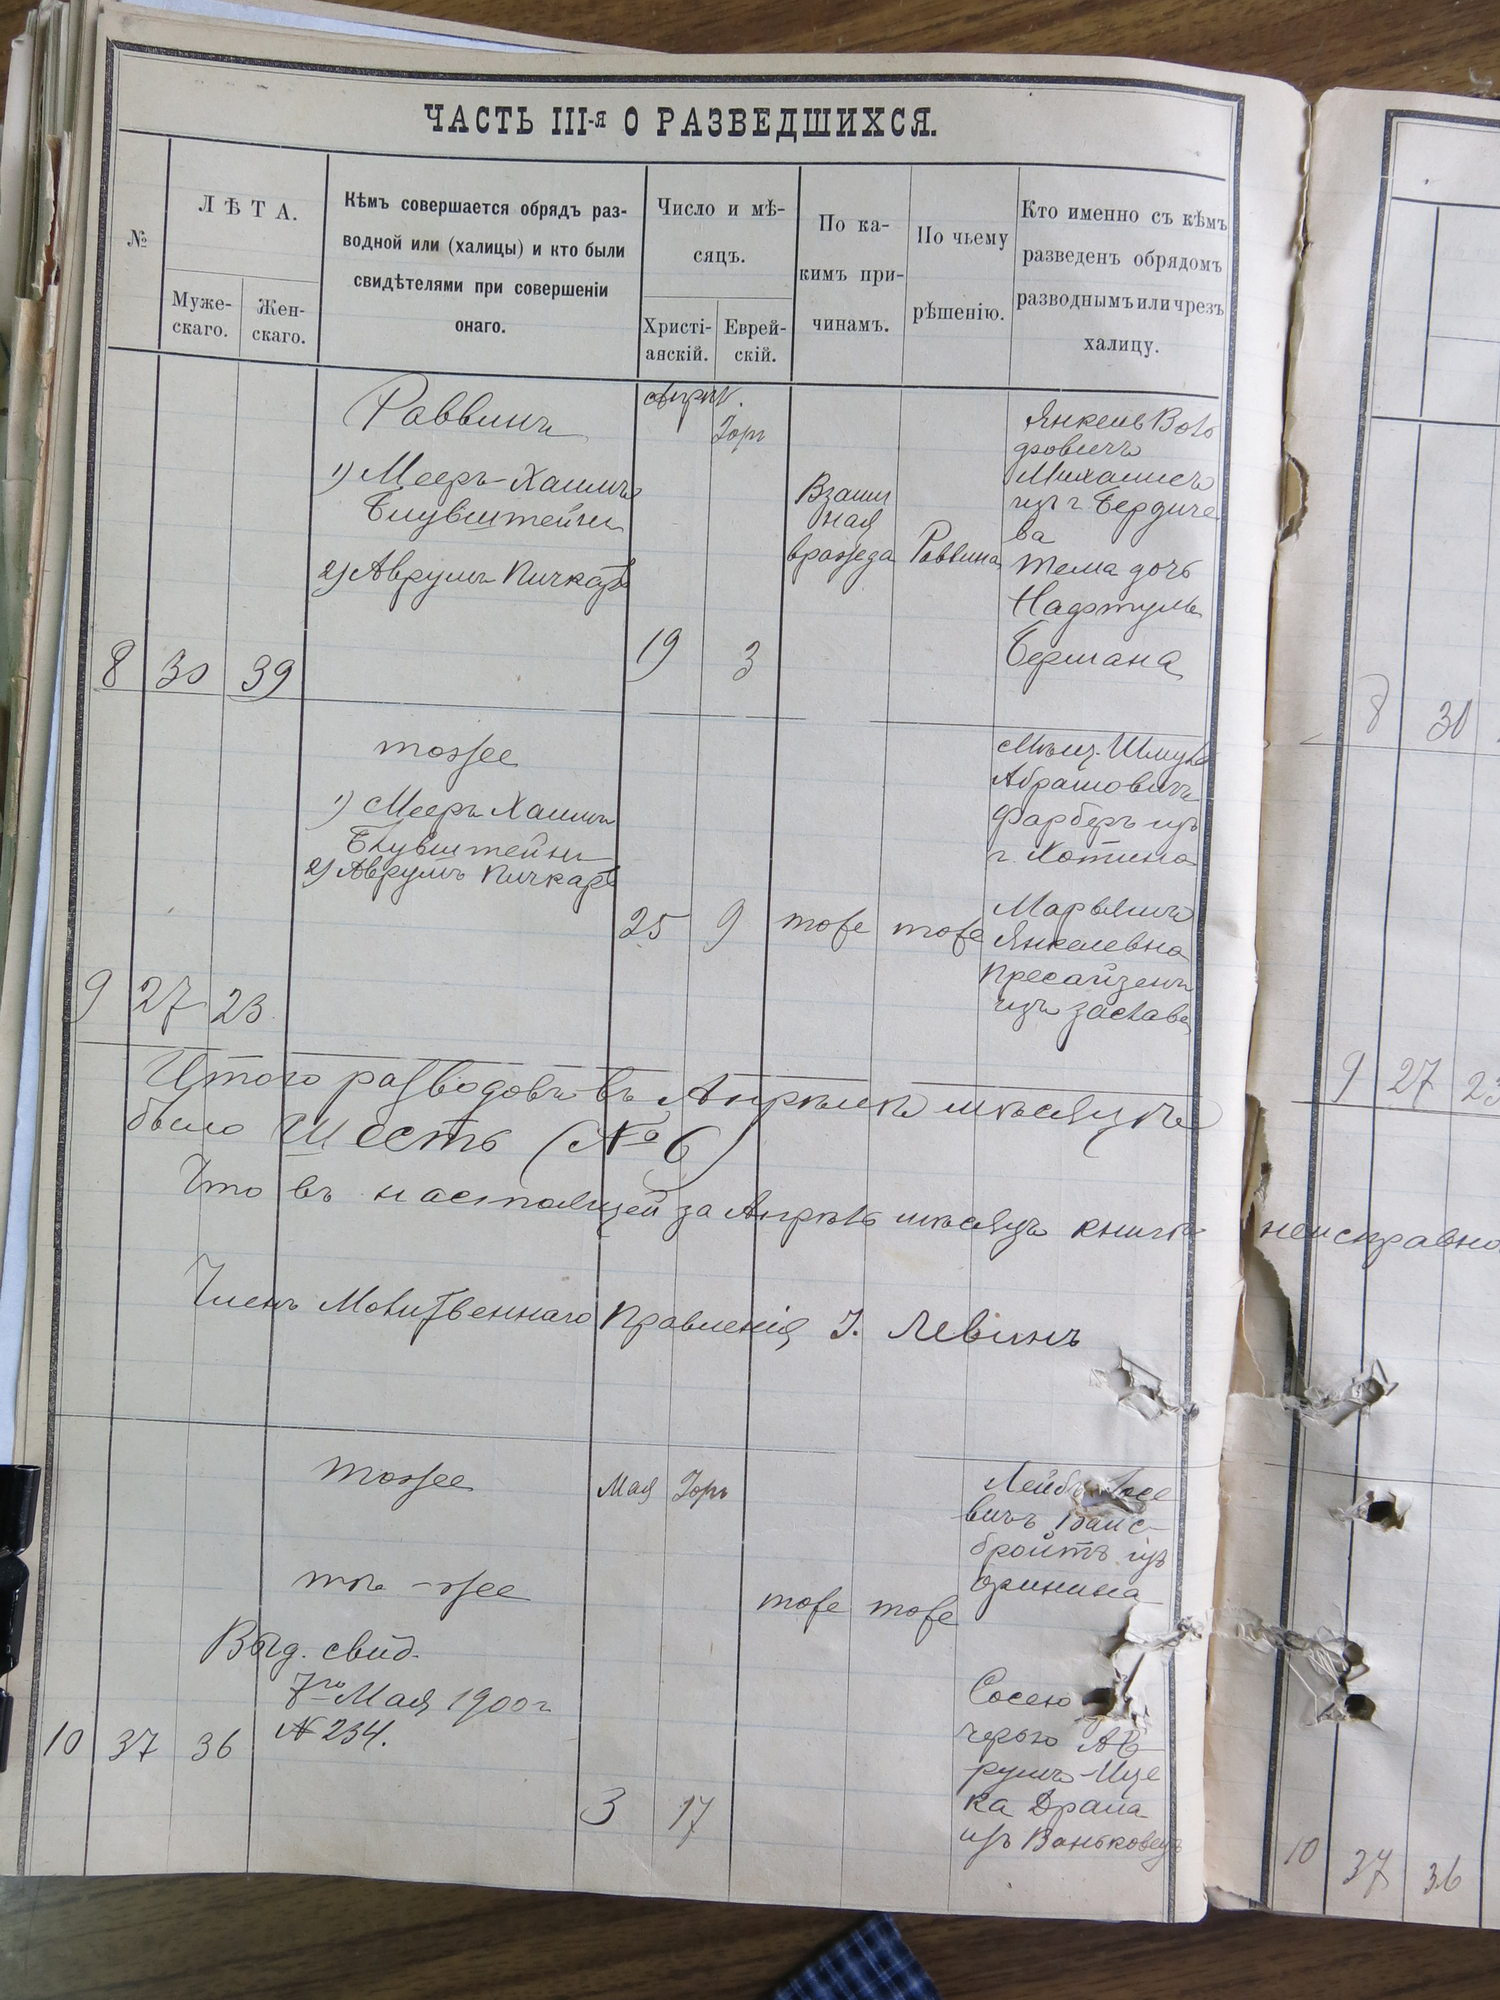 ЧАСТЬ III-я О РАЗВЕДШИХСЯ.
№
ЛѢТА.
Муже-
скаго.
Жен-
скаго.
Кѣмъ совершается обрядъ раз-
водной или (халицы) и кто были
свидѣтелями при совершеніи
онаго.
Число и мѣ-
сяцъ.
Христі-
анскій.
Еврей-
скій.
По ка-
кимъ при-
чинамъ.
По чьему
рѣшенію.
Кто именно съ кѣмъ
разведенъ обрядомъ
разводнымъ или чрезъ
халицу.
8
30
39
Раввинъ
1) Мееръ-Хаимъ
Блувштейнъ
2) Аврумъ Пичкарь
Апрѣл.
19
Іоръ
3
Взаим
ная
вражда
Раввина
Янкель Воль
фовичъ
Михалисъ
изъ г. Бердиче
ва
Тема дочь
Нафтулы
Бермана
9
27
23
тоже
1) Мееръ Хаимъ
Блувштейнъ
2) Аврумъ Пичкарь
25
9
тоже
тоже
Мѣщ. Шмуль
Абрамовичъ
Фарберъ изъ
г. Хотина
Марьямъ
Янкелевна
Пресайзенъ
изъ Застав
Итого разводовъ въ Апрѣлѣ мѣсяцѣ
было Шесть (№ 6)
Что въ настоящей за Апрѣль мѣсяцъ книгѣ неисправно
Членъ Молитвеннаго Правленія І. Левинъ
10
37
36
тоже
то-же
Выд. свид.
7го Мая 1900 г
№ 234.
Мая
3
Іоръ
17
тоже
тоже
Лейбъ
вичъ
бройтъ изъ
Оринина
Сосею
черью Ав
румъ-Ице
ка Драйа
изъ Ваньковецъ
8
30
9
27
23
10
37
36